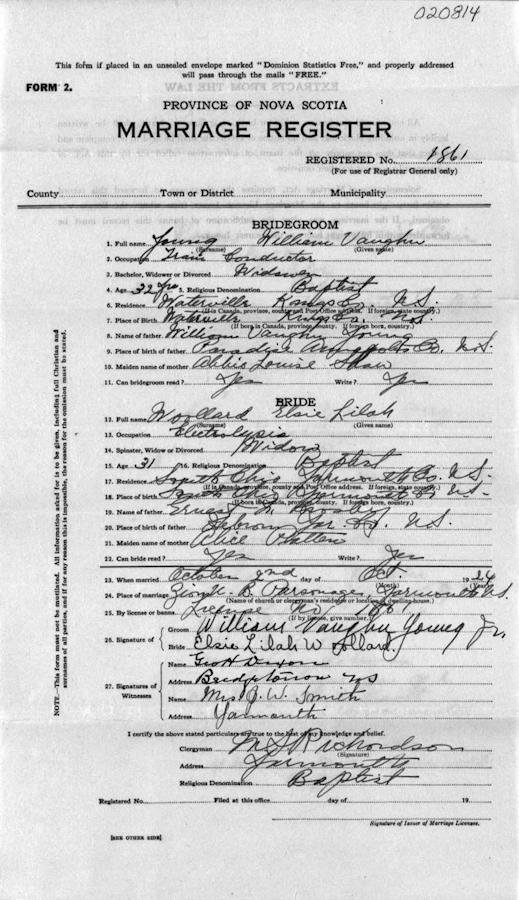 020814
This form if placed in an unsealed envelope marked "Dominion Statistics Free," and properly addressed
will pass through the mails "FREE."
FORM 2.
PROVINCE OF NOVA SCOTIA
MARRIAGE REGISTER
REGISTERED No. 1861
(For use of Registrar General only)
County Town or District Municipality
BRIDEGROOM
1. Full name Young William Vaughn
(Surname) (Given name)
2. Occupation Train Conductor
3. Bachelor, Widower or Divorced Widower
4. Age 32 yrs 5. Religious Denomination Baptist
6. Residence Waterville Kings Co. N.S.
(If in Canada, province, county and Post Office address. If foreign, state country.)
7. Place of Birth Waterville Kings Co. N.S.
(If born in Canada, province, county. If foreign born, country.)
8. Name of father William Vaughn Young
9. Place of birth of father Paradise Annapolis Co. N.S.
10. Maiden name of mother Abbie Louise Shaw
11. Can bridegroom read? Yes Write? Yes
BRIDE
12. Full name Woollard Elsie Lilah
(Surname) (Given name)
13. Occupation
14. Spinster, Widow or Divorced Widow
15. Age 31 16. Religious Denomination Baptist
17. Residence South Ohio Yarmouth Co. N.S.
(If in Canada, province, county and Post Office address. If foreign, state country.)
18. Place of birth South Ohio Yarmouth Co N.S.
(If born in Canada, province, county. If foreign born, country.)
19. Name of father Ernest
20. Place of birth of father Hebron Yar. Co. N.S.
21. Maiden name of mother Alice Patten
22. Can bride read? Yes Write? Yes
23. When married October 2nd day of Oct 1924
(Month) (Year)
24. Place of marriage Zion U. B. Parsonage, Yarmouth N.S.
(Name of church or clergyman's residence or location of dwelling-house.)
25. By license or banns License No.
(If by license, give number.)
26. Signature of
Groom William Vaughn Young Jr.
Bride Elsie Lilah Woollard.
27. Signatures of Witnesses
Name Geo H Dixon
Address Bridgetown NS
Name Mrs J. W. Smith
Address Yarmouth
I certify the above stated particulars are true to the best of my knowledge and belief.
Clergyman Richardson
(Signature)
Address Yarmouth
Religious Denomination Baptist
Registered No. Filed at this office day of 19
Signature of Issuer of Marriage Licenses.
[SEE OTHER SIDE]
NOTE.—This form must not be mutilated. All information asked for is to be given, including full Christian and
surnames of all parties, and if for any reason this is impossible, the reason for the omission must be stated.